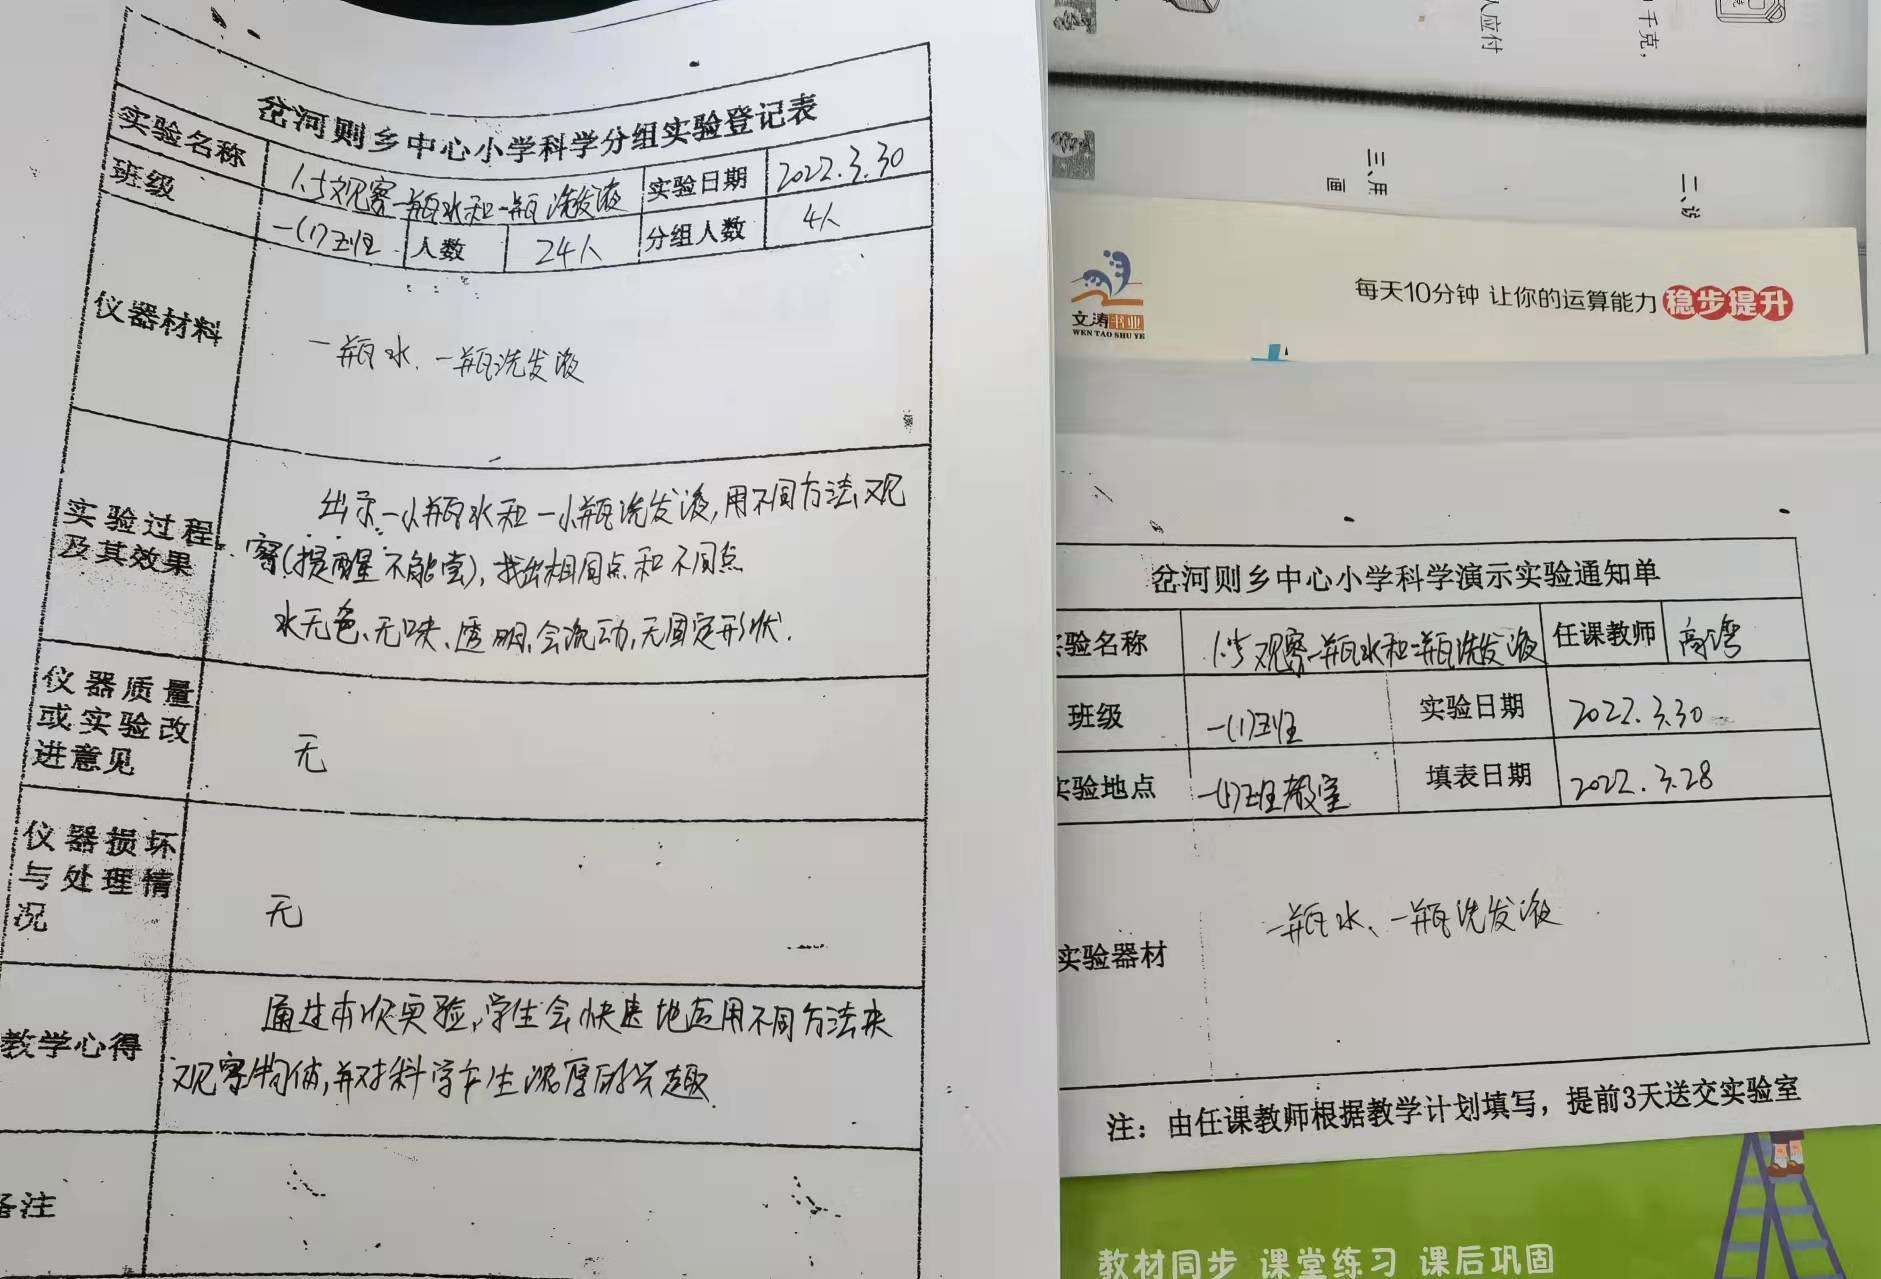 岔河则乡中心小学科学分组实验登记表
实验名称 1.5观察一瓶水和一瓶洗发液 实验日期 2022.3.30
班级 一(1)班 人数 24人 分组人数 4人
仪器材料 一瓶水、一瓶洗发液
实验过程
及其效果
出示一小瓶水和一小瓶洗发液,用不同方法观
察(提醒不能尝),找出相同点和不同点
水无色、无味、透明,会流动,无固定形状.
仪器质量
或实验改
进意见
无
仪器损坏
与处理情
况
无
教学心得
通过本次实验,学生会快速地运用不同方法来
观察物体,并对科学产生浓厚的兴趣.
备注
千克,
人应付
三、用
画
二、说
每天10分钟 让你的运算能力 稳步提升
文涛书业
WEN TAO SHU YE
岔河则乡中心小学科学演示实验通知单
实验名称 1.5观察一瓶水和一瓶洗发液 任课教师 高湾
班级 一(1)班 实验日期 2022.3.30
实验地点 一(1)班教室 填表日期 2022.3.28
实验器材 一瓶水、一瓶洗发液
注：由任课教师根据教学计划填写，提前3天送交实验室
教材同步 课堂练习 课后巩固